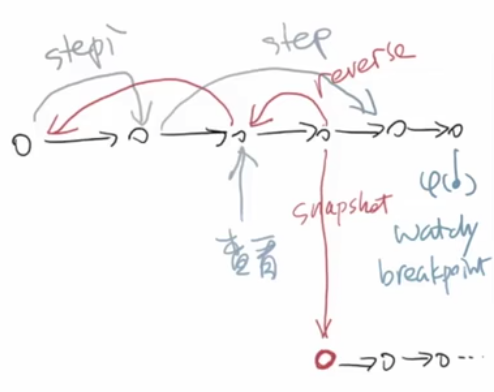 stepi
step
reverse
snapshot
查看
φ(
watch
breakpoint